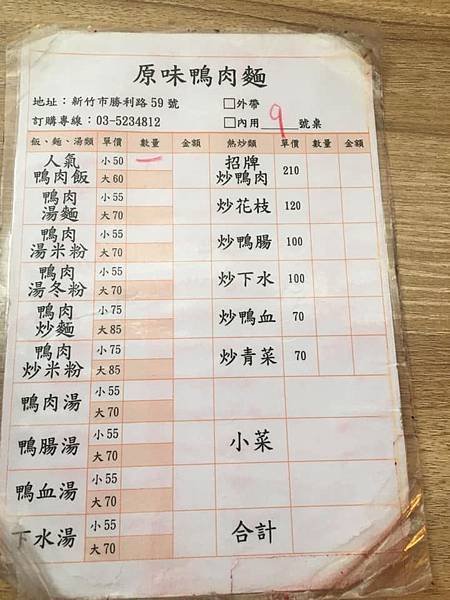 原味鴨肉麵
地址：新竹市勝利路59號 □外帶
訂購專線：03-5234812 □內用 9 號桌
飯、麵、湯類 單價 數量 金額 熱炒類 單價 數量 金額
人氣鴨肉飯 小50 一 招牌炒鴨肉 210
大60
鴨肉湯麵 小55 炒花枝 120
大70
鴨肉湯米粉 小55 炒鴨腸 100
大70
鴨肉湯冬粉 小55 炒下水 100
大70
鴨肉炒麵 小75 炒鴨血 70
大85
鴨肉炒米粉 小75 炒青菜 70
大85
鴨肉湯 小55
大70
鴨腸湯 小55 小菜
大70
鴨血湯 小55
大70
下水湯 小55 合計
大70